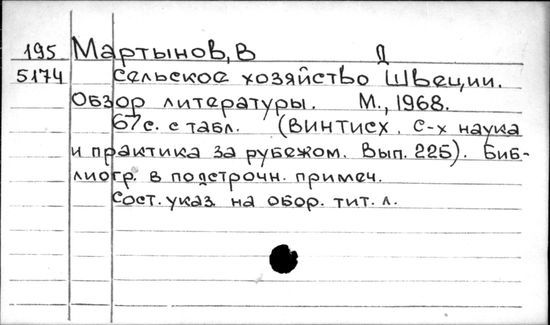 195 Мартынов, В Д
5174 Сельское хозяйство Швеции.
Обзор литературы. М., 1968.
67 с. с табл. (ВИНТИСХ. С-х наука
и практика за рубежом. Вып. 225). Биб-
лиогр. в подстрочн. примеч.
Сост. указ. на обор. тит. л.